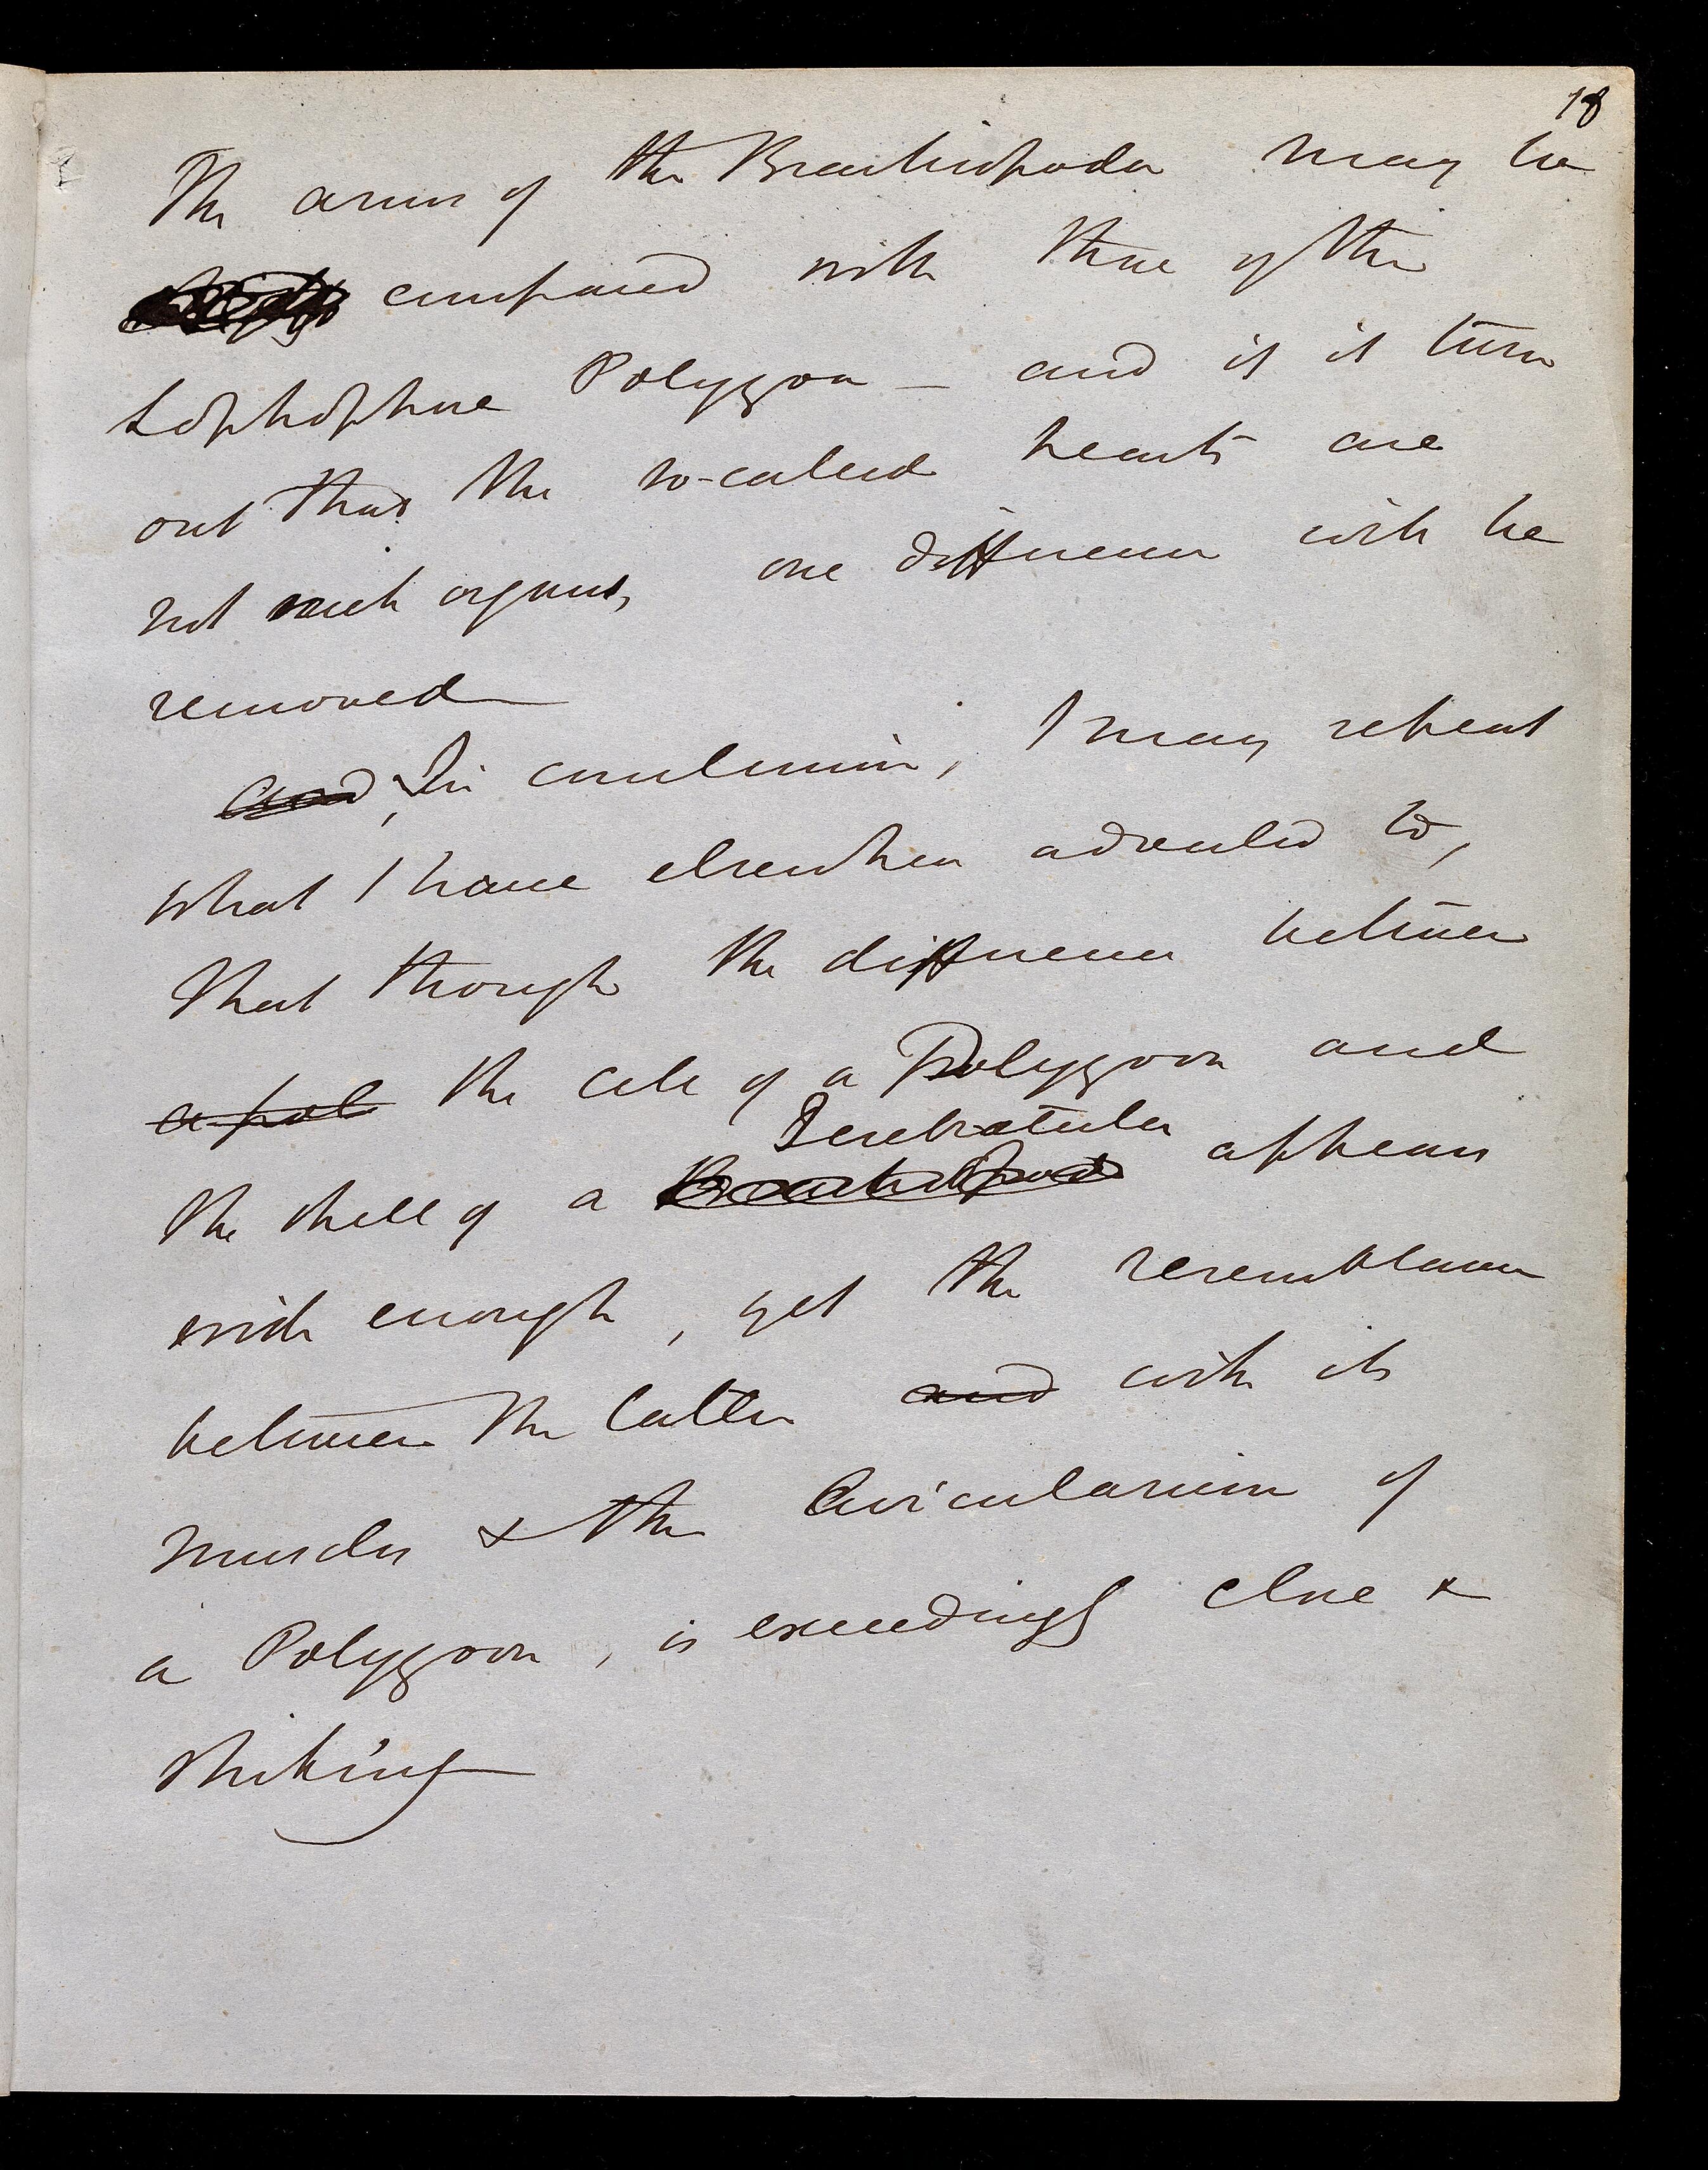 18
The arms of the Brachiopoda may be
compared with those of the
Lophophore Polyzoa — and if it turn
out that the so-called hearts are
not such organs, one difference will be
removed
and, In conclusion, I may repeat
what I have elsewhere adverted to,
that though the difference between
a pol the cell of a Polyzoon and
Terebratula
the shell of a Brachiopod appears
wide enough, yet the resemblance
between the latter and with its
muscles & the Avicularium of
a Polyzoon, is exceedingly close &
striking